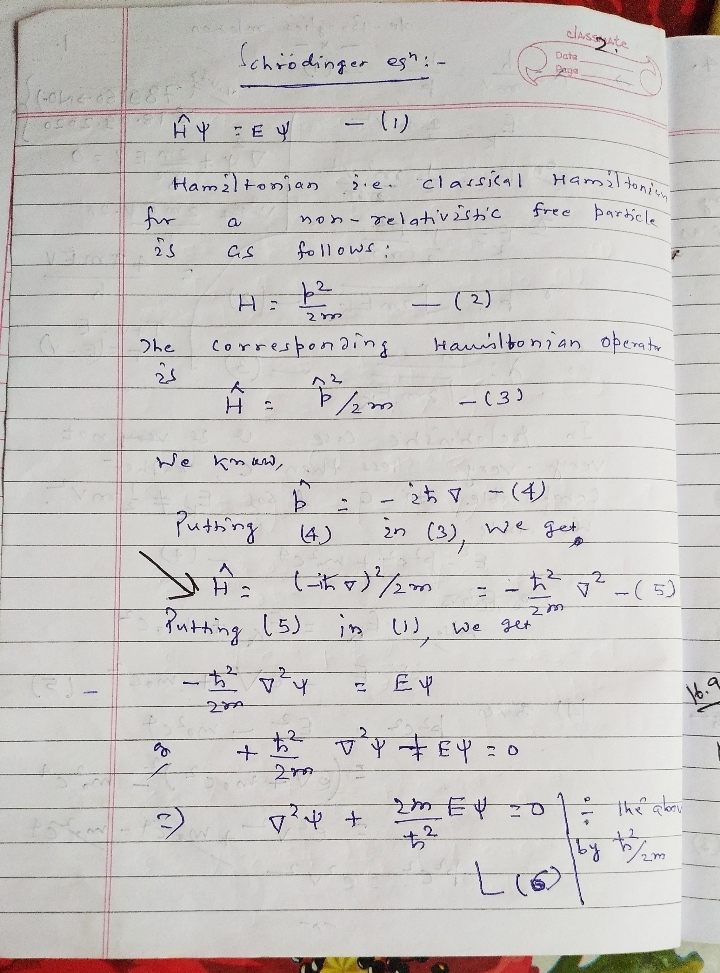 classmate
2.
Date
Page
Schrödinger eqⁿ:-
Ĥψ = Eψ — (1)
Hamiltonian i.e. classical Hamiltonian
for a non-relativistic free particle
is as follows:
H = p²/2m — (2)
The corresponding Hamiltonian operator
is
Ĥ = p̂²/2m — (3)
We know,
p̂ = - iħ∇ — (4)
Putting (4) in (3), we get,
Ĥ = (-iħ∇)²/2m = - ħ²/2m ∇² — (5)
Putting (5) in (1), we get
- ħ²/2m ∇²ψ = Eψ
or + ħ²/2m ∇²ψ + Eψ = 0
⇒ ∇²ψ + 2m/ħ² Eψ = 0 | ÷ the above
by ħ²/2m
(6)
16.9